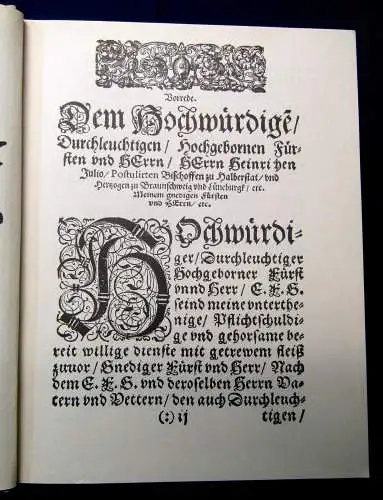 Vorrede.
Dem Hochwürdigẽ/
Durchleuchtigen/ Hochgebornen Für-
sten vnd HErrn/ HErrn Heinrichen
Julio/ Postulirten Bischoffen zu Halberstat/ vnd
Hertzogen zu Braunschweig vnd Lüneburgk/ etc.
Meinem gnedigen Fürsten
vnd HErrn/ etc.
HOchwürdi-
ger/ Durchleuchtiger
Hochgeborner Fürst
vnnd Herr/ E. F. G.
seind meine vnterthe-
nige/ Pflichtschuldi-
ge vnd gehorsame be-
reit willige dienste mit getrewem fleiß
zuuor/ Gnediger Fürst vnd Herr/ Nach
dem E. F. G. vnd deroselben Herrn Va-
tern vnd Vettern/ den auch Durchleuch-
(:) ij tigen/